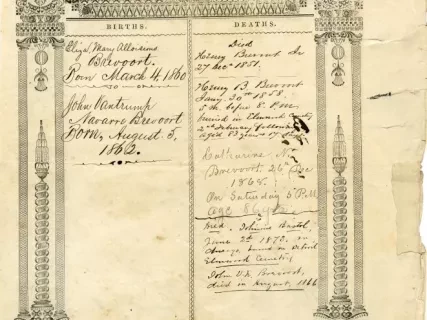 BIRTHS.
Eliza Mary Alloisious
Brevoort.
Born March 4 1860
John Vantrump
Navarre Brevoort
Born, August 5,
1862.
DEATHS.
Died
Henry Brevoort Jr
27 Dec 1851.
Henry B. Brevoort
Jany 30th 1858
5 m. before 8 P.M.
buried in Elmwood Cemetery
2nd February following
aged 83 years 17
Catharine N.
Brevoort 26 Dec
1868.
On Saturday 5 P.M.
age 86
Died, Bristol,
June 2d 1870, in
Detroit
Elmwood Cemetery,
John V.N. Brevoort,
died in August, 1866